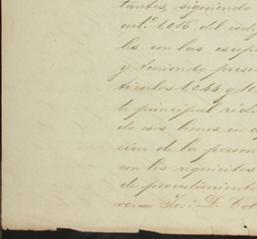 tantes, siguiendo
art.º 1,016 del cod
les con las escep
y teniendo presen
ticulos 1,044 y 10
te principal rede
do sus bienes en
cion de la person
con los requisitos
de procedimiento
ver= José D. Cob